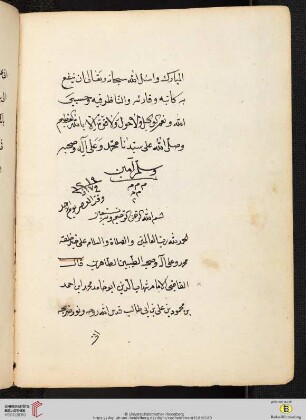 المبارك واسئل الله سبحانه وتعالى ان ينفع
به كاتبه وقارئه والناظر فيه وحسبي
الله ونعم الوكيل ولا حول ولا قوة الا بالله العظيم
وصلى الله على سيدنا محمد وعلى آله وصحبه
وسلم آمين
م م م
بسم الله الرحمن الرحيم وبه نستعين
الحمد لله رب العالمين والصلاة والسلام على خير خلقه
محمد وعلى آله وصحبه الطيبين الطاهرين قال
القاضي الامام شهاب الدين ابو حامد محمد ابن احمد
بن محمود بن علي بن ابي طالب قدس الله روحه ونور ضريحه
© Universitätsbibliothek Heidelberg
UNIVERSITÄTS-
BIBLIOTHEK
HEIDELBERG